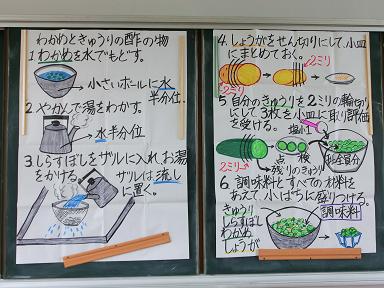 わかめときゅうりの酢の物
1.わかめを水でもどす。
小さいボールに水
半分位.
2.やかんで湯をわかす。
水半分位.
3.しらすぼしをザルに入れ、お湯
をかける。
ザルは流し
に置く。
4.しょうがをせん切りにして、小皿
にまとめておく。
2ミリ
5.自分のきゅうりを2ミリの輪切り
にして3枚を小皿に取り評価
を受ける。
塩小1
2ミリ
点検
残りのきゅうり
6.調味料とすべての材料を
あえて、小ばちに盛りつける。
きゅうり
しらすぼし
わかめ
しょうが
調味料